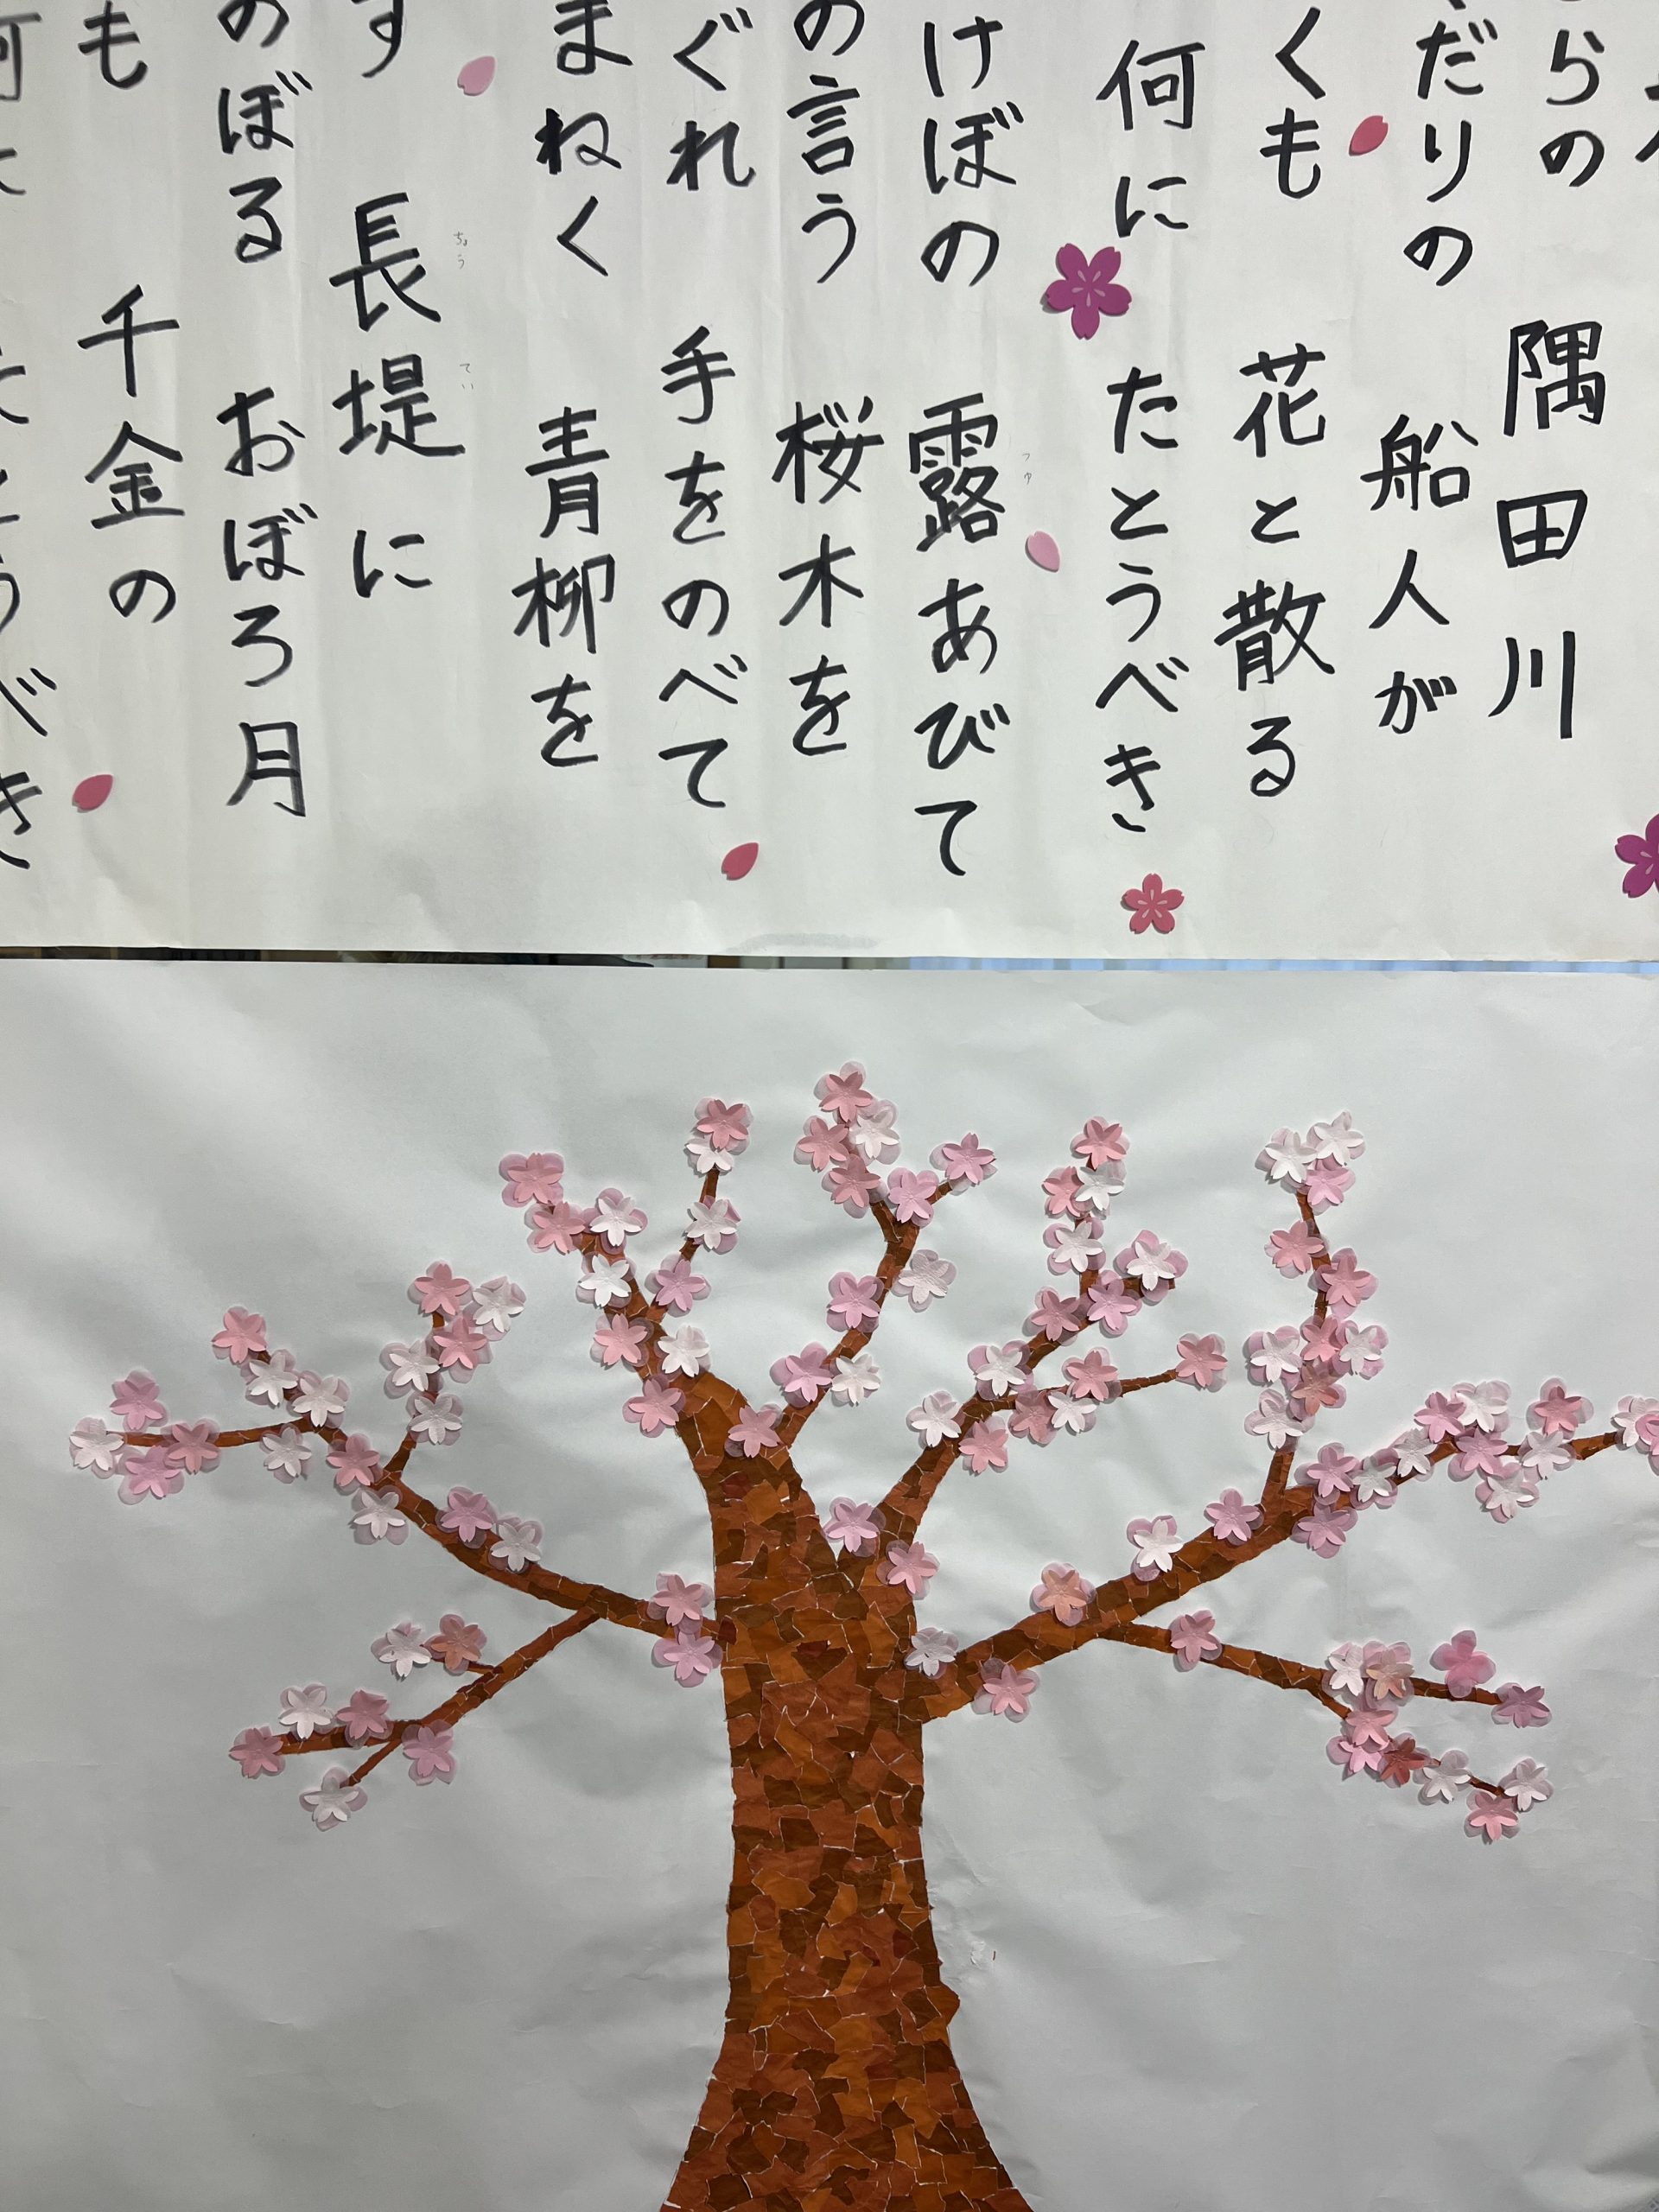 らの 隅田川
だりの 船人が
くも 花と散る
何に たとうべき
つゆ
けぼの 露あびて
の言う 桜木を
ぐれ 手をのべて
まねく 青柳を
ちょう てい
す 長堤に
のぼる おぼろ月
も 千金の